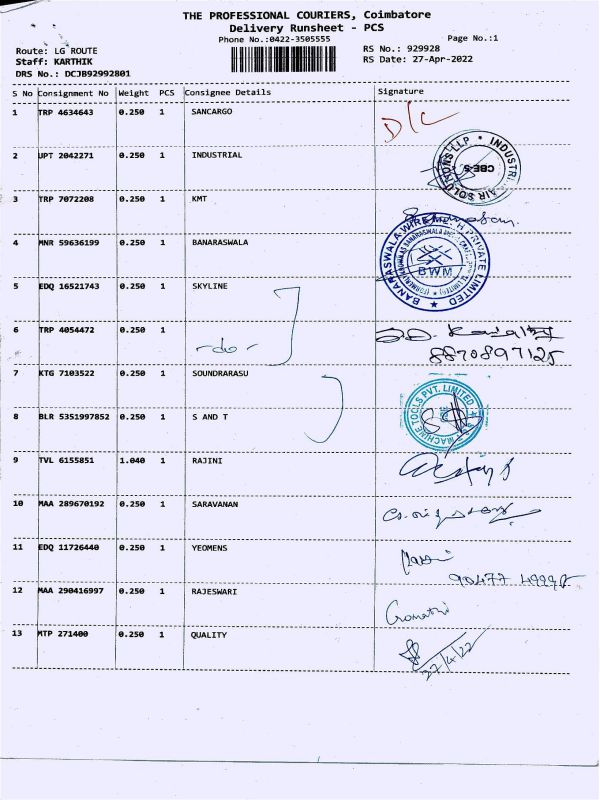 THE PROFESSIONAL COURIERS, Coimbatore
Delivery Runsheet - PCS
Phone No.:0422-3505555
Page No.:1
Route: LG ROUTE
RS No.: 929928
Staff: KARTHIK
RS Date: 27-Apr-2022
DRS No.: DCJB92992801
S No Consignment No Weight PCS Consignee Details Signature
1 TRP 4634643 0.250 1 SANCARGO D/C
2 UPT 2042271 0.250 1 INDUSTRIAL
INDUSTRI AIR SOLUTIONS LLP * CBE-5
3 TRP 7072208 0.250 1 KMT
4 MNR 59636199 0.250 1 BANARASWALA
BANARASWALA WIRE MESH PRIVATE LIMITED BWM
5 EDQ 16521743 0.250 1 SKYLINE
6 TRP 4054472 0.250 1 -do-
8870897125
7 KTG 7103522 0.250 1 SOUNDRARASU
8 BLR 5351997852 0.250 1 S AND T
MACHINE TOOLS PVT. LIMITED
9 TVL 6155851 1.040 1 RAJINI
10 MAA 289670192 0.250 1 SARAVANAN
11 EDQ 11726440 0.250 1 YEOMENS
12 MAA 290416997 0.250 1 RAJESWARI
Gomathi
13 MTP 271400 0.250 1 QUALITY
27/4/22